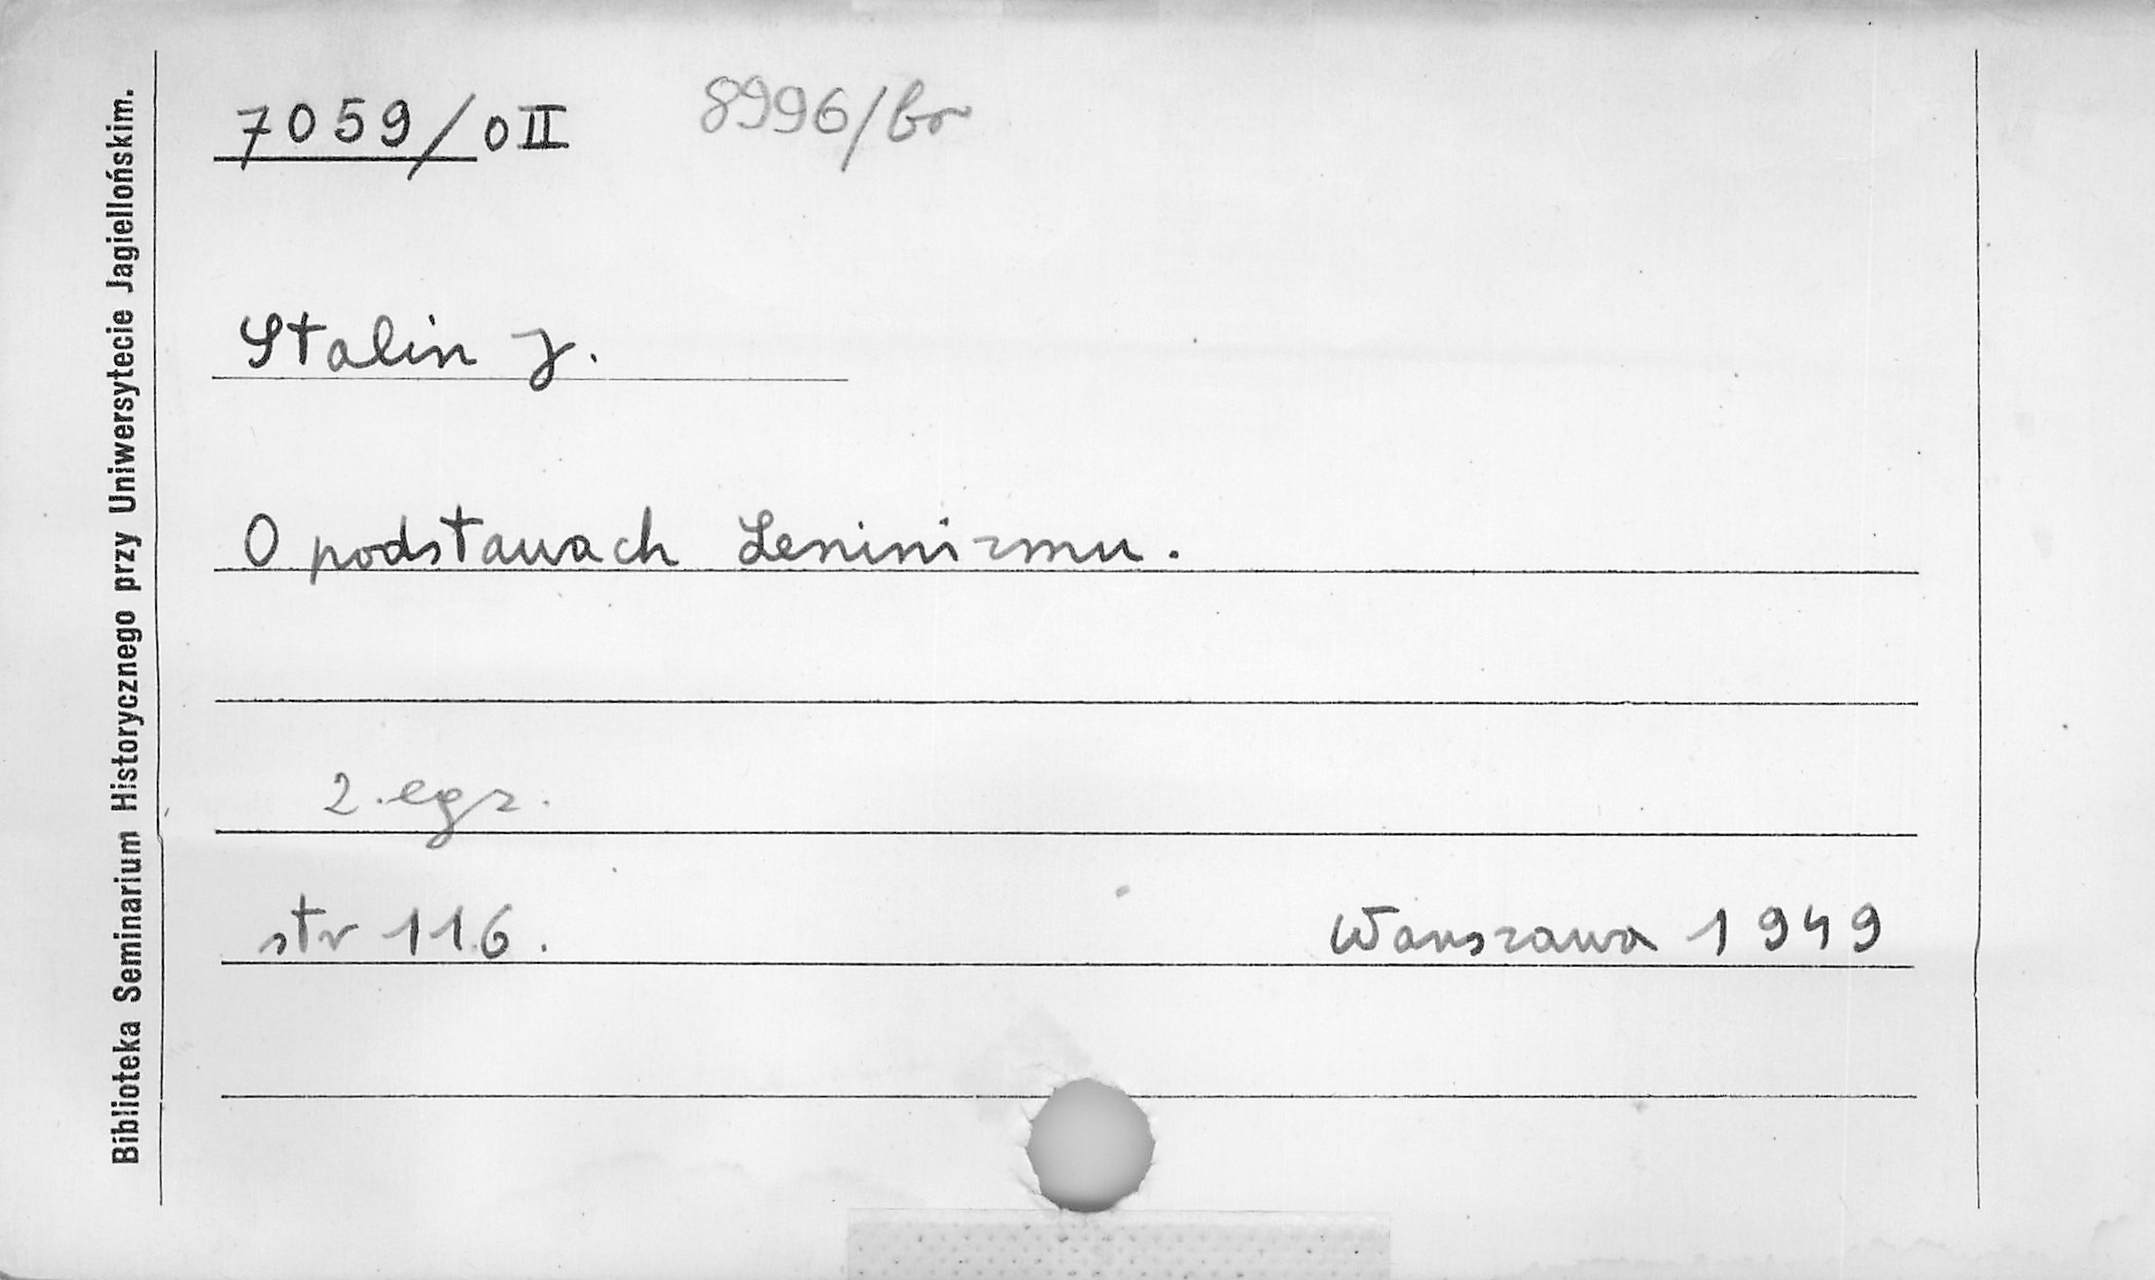 7059/oII 8996/br
Stalin J.
O podstawach Leninizmu.
2. egz.
str 116.
Warszawa 1949
Biblioteka Seminarium Historycznego przy Uniwersytecie Jagiellońskim.